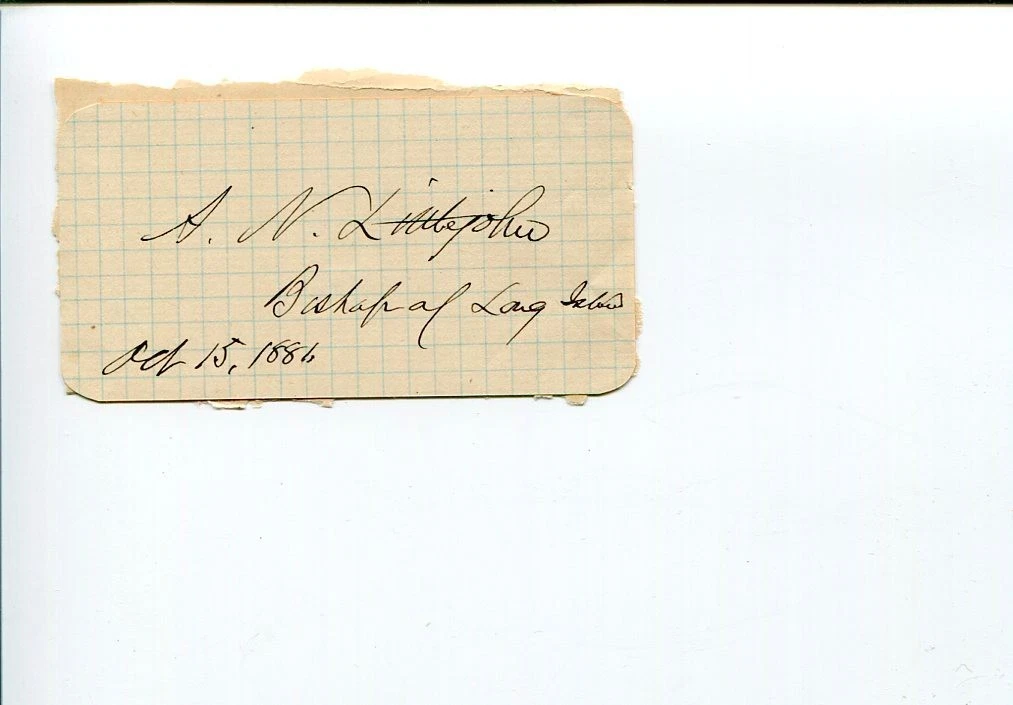 A. N. Littlejohn
Bishop of Long Island
Oct 15, 1886